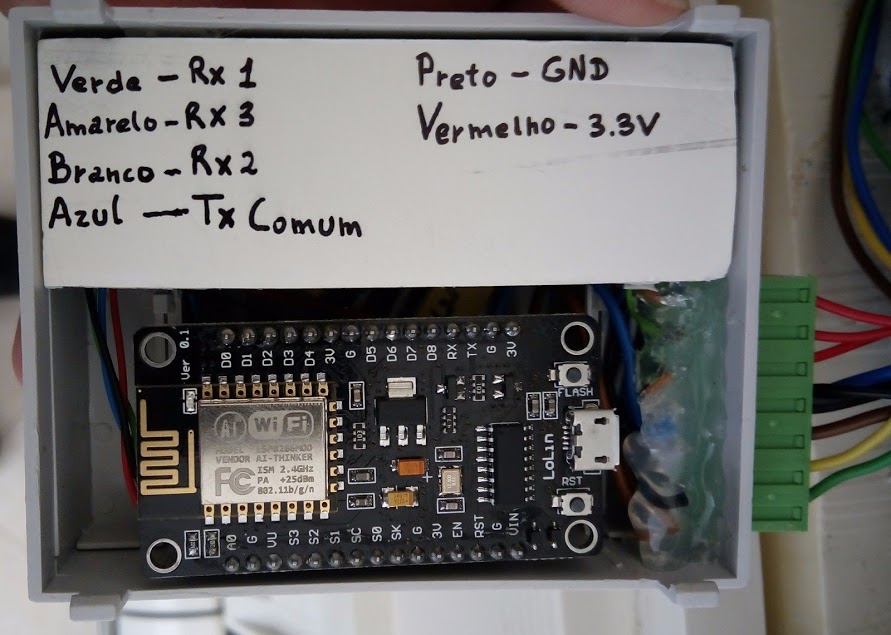 Verde - Rx 1
Amarelo - Rx 3
Branco - Rx 2
Azul — Tx Comum
Preto - GND
Vermelho - 3.3V
Ver 0.1
D0 D1 D2 D3 D4 3V G D5 D6 D7 D8 RX TX G 3V
FLASH
Ai WiFi
VENDOR AI-THINKER
FC ISM 2.4GHz
PA +25dBm
802.11b/g/n
LoLin
RST
A0 G VU S3 S2 S1 SC S0 SK G 3V EN RST G VIN